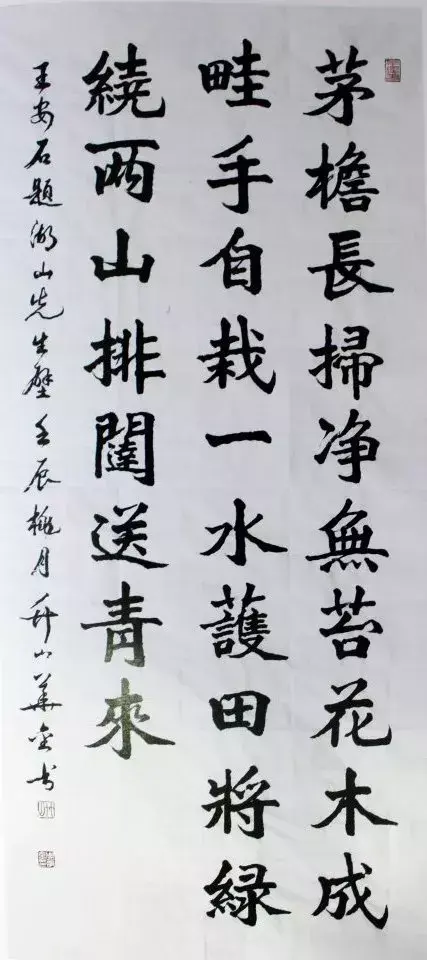 茅檐長掃净無苔花木成
畦手自栽一水護田將緑
繞两山排闥送青來
王安石題湖山先生壁壬辰桃月升山華金书